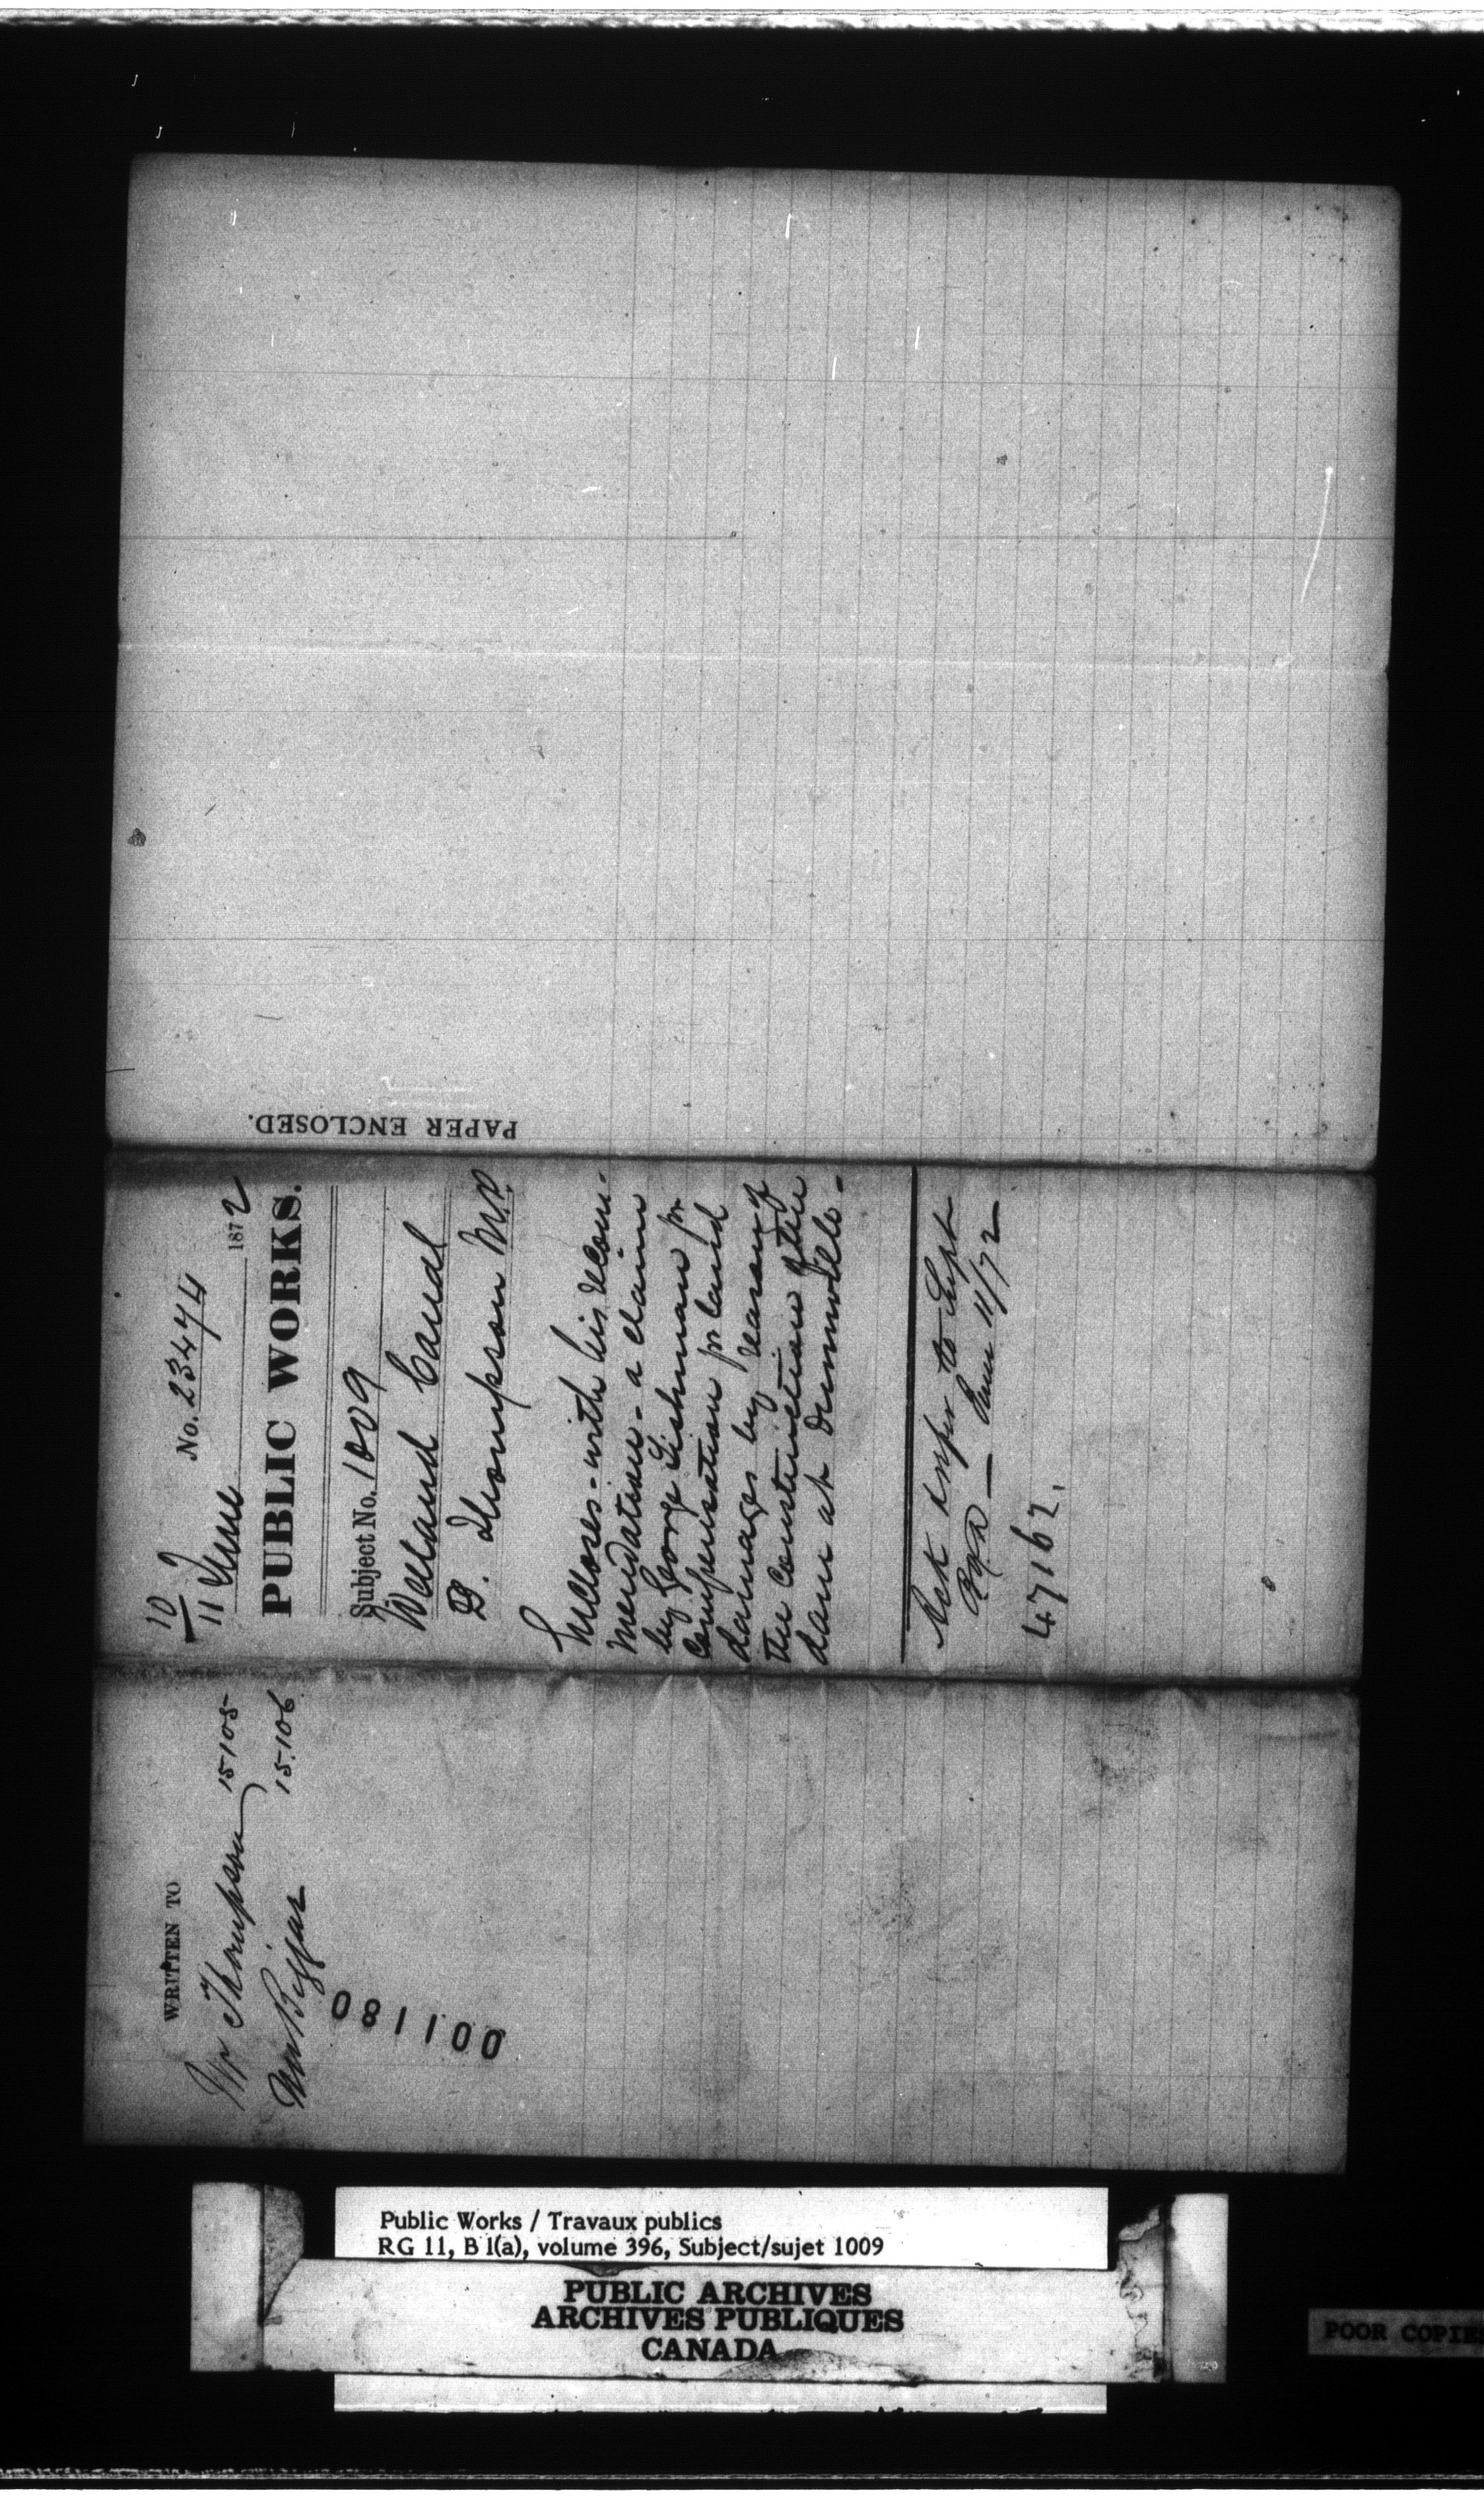 PAPER ENCLOSED.
10
11 June
No. 23474
1872
PUBLIC WORKS.
Subject No. 1009
Welland Canal
D. Thompson M.P.
Incloses - with his recom-
mendation - a claim
by George Fishman for
compensation for land
damages by reason of
the construction of the
dam at Dunnville -
Ack & refer to Supt
June 11/72
47162.
WRITTEN TO
Mr Thompson 15105
Mr Biggar 15.106
081100
Public Works / Travaux publics
RG 11, B 1(a), volume 396, Subject/sujet 1009
PUBLIC ARCHIVES
ARCHIVES PUBLIQUES
CANADA
POOR COPIE